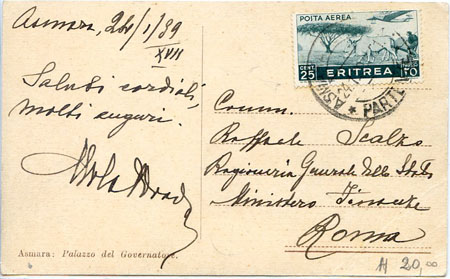 Asmara, 24/1/39
XVII
Saluti cordiali,
molti auguri.
Asmara: Palazzo del Governatore.
POSTA AEREA
CENT.
25
ERITREA
ASM
PARTENZE
Comm.
Raffaele Scalzo
Ragioneria Generale dello Stato
Ministero Finanze
Roma
20,00